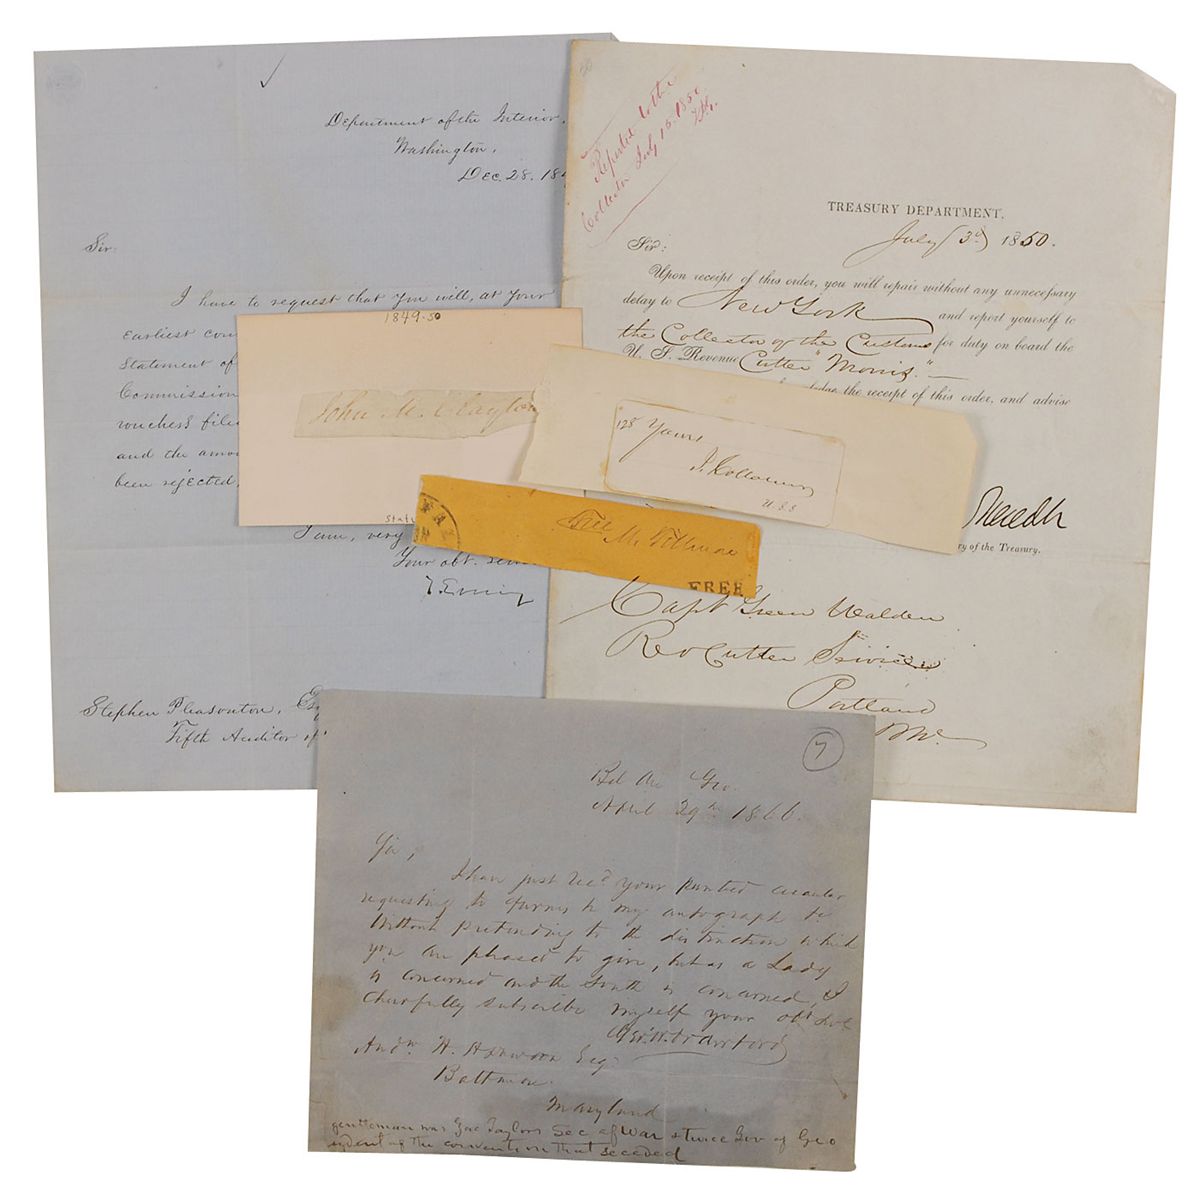 Department of the Interior,
Washington,
Dec. 28. 184
Sir.
I have to request that you will, at your
earliest con
Statement of
Commission
vouchers file
and the amou
been rejected,
I am, very
Your obt. serv
T. Ewing
Stephen Pleasonton, Es
Fifth Auditor of
Reported to the
Collector July 15. 1850
TREASURY DEPARTMENT,
July 3d 1850.
Sir:
Upon receipt of this order, you will repair without any unnecessary
delay to New York and report yourself to
the Collector of the Customs for duty on board the
U. S. Revenue Cutter "Morris."
the receipt of this order, and advise
Meredith
ry of the Treasury.
Capt Green Walden
Rev Cutter Service
Portland
Me.
1849-50
John M. Clayton
State
128
Yours
J. Collamer
U.S.S
Free
M. Fillmore
FREE
7
Bel Air Geo.
April 29th 1866.
Sir,
I have just recd your printed circular
requesting to furnish my autograph &c
Without pretending to the distinction which
you are pleased to give, but as a Lady
is concerned and the South is concerned, I
cheerfully subscribe myself your obt Svt
Geo. W. Crawford
Andw H.
Esq.
Baltimore.
Maryland
gentleman was Zac Taylors Sec of War & twice Gov of Geo
sident of the convention that seceded